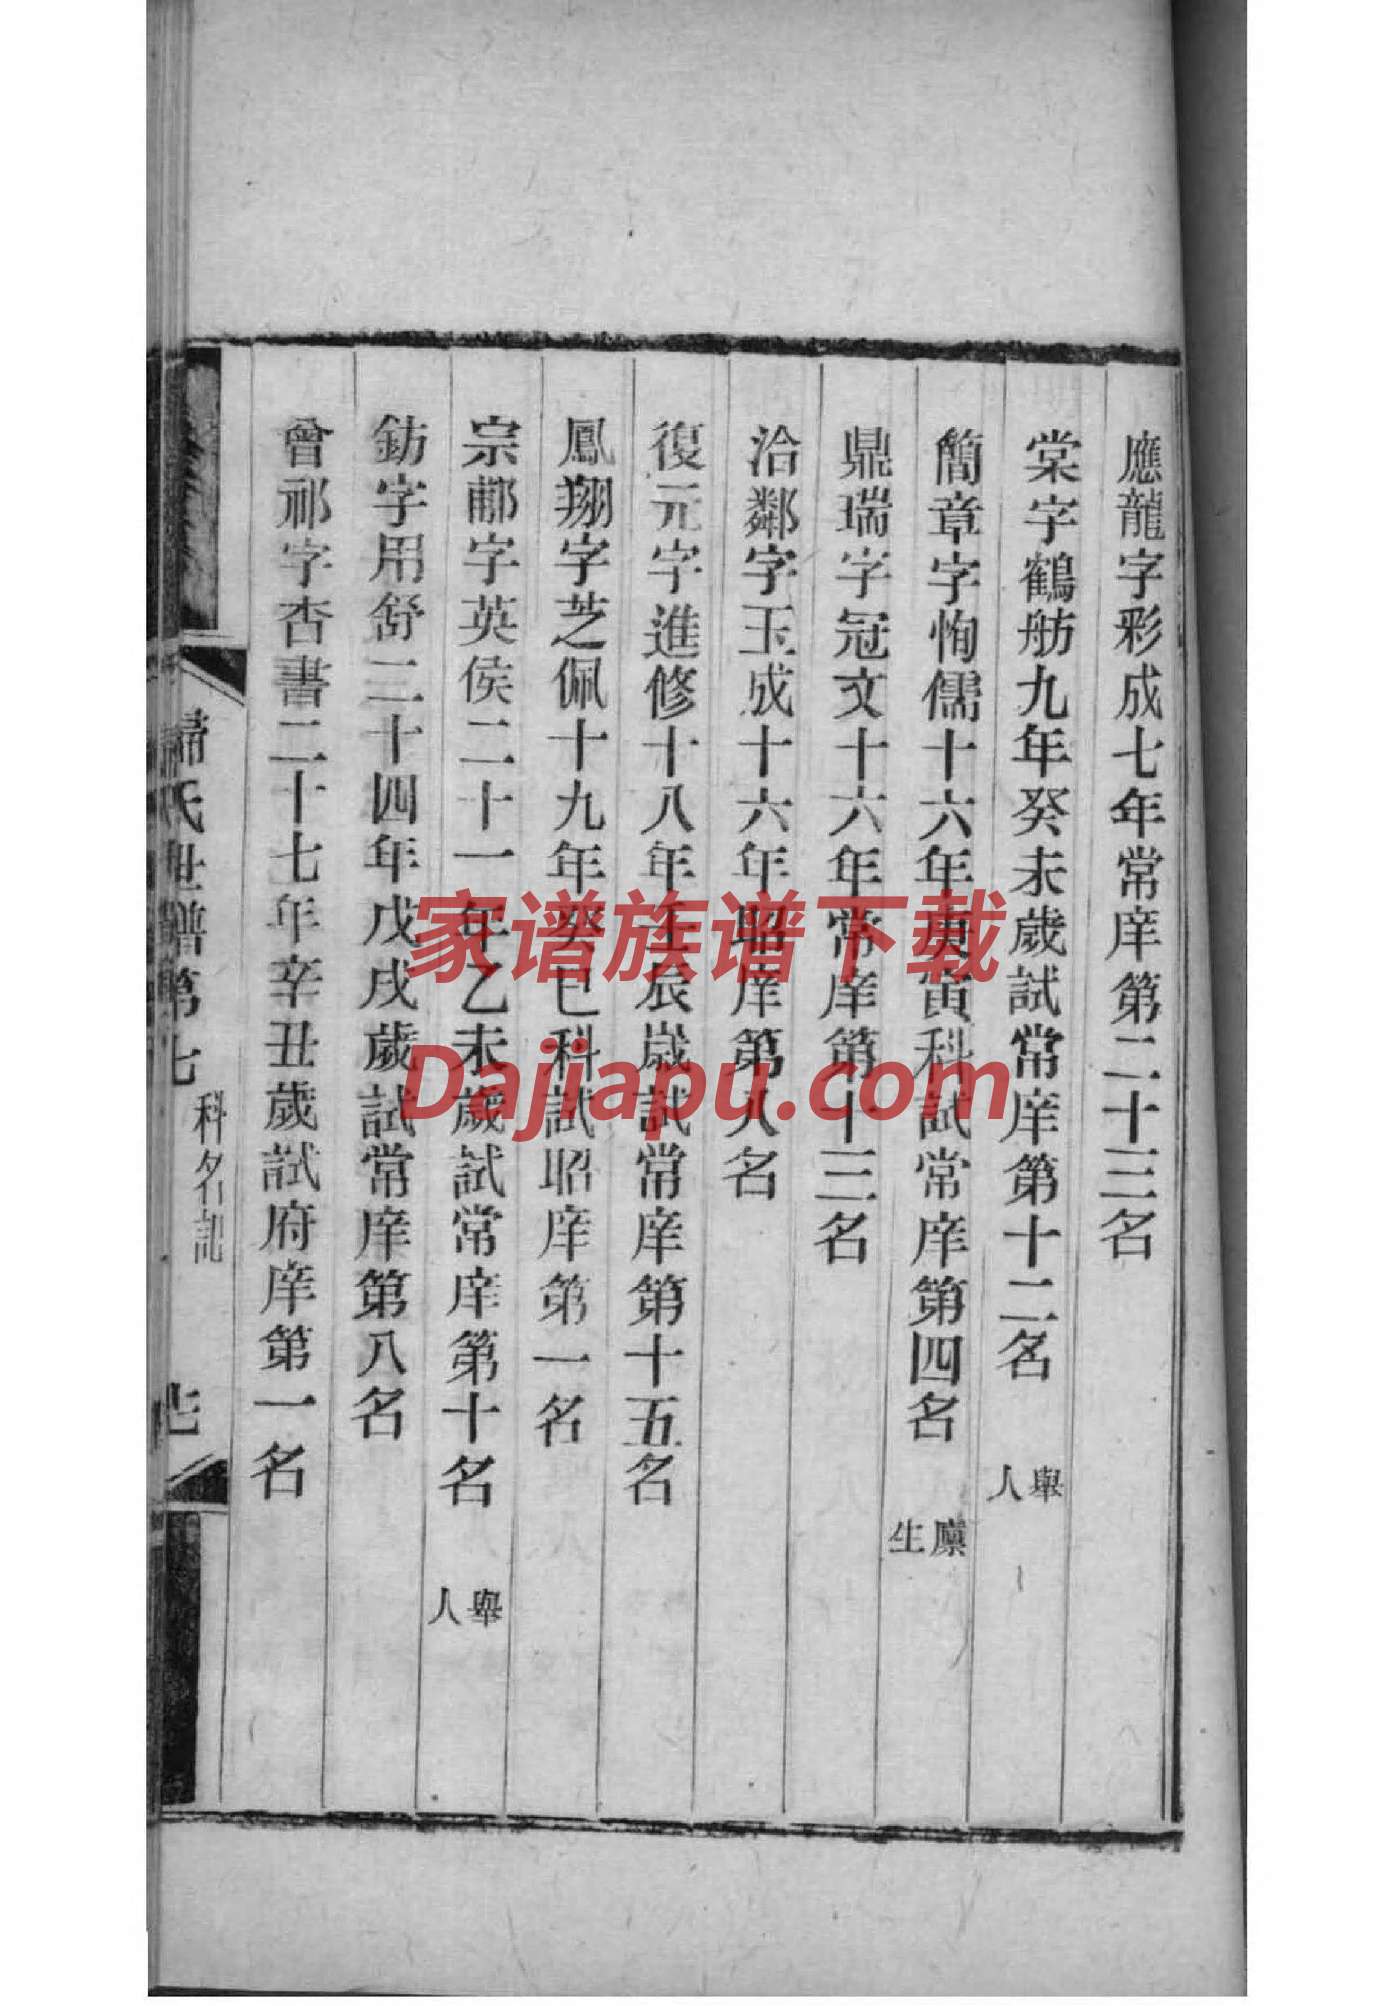 應龍字彩成七年常庠第二十三名
棠字鶴舫九年癸未歲試常庠第十二名 舉人
簡章字恂儒十六年庚寅科試常庠第四名 廩生
鼎瑞字冠文十六年常庠第十三名
洽鄰字玉成十六年昭庠第八名
復元字進修十八年壬辰歲試常庠第十五名
鳳翔字芝佩十九年癸巳科試昭庠第一名
宗郙字英侯二十一年乙未歲試常庠第十名 舉人
鈁字用舒二十四年戊戌歲試常庠第八名
曾祁字杏書二十七年辛丑歲試府庠第一名
歸氏世譜第七 科名記
家谱族谱下载
Dajiapu.com